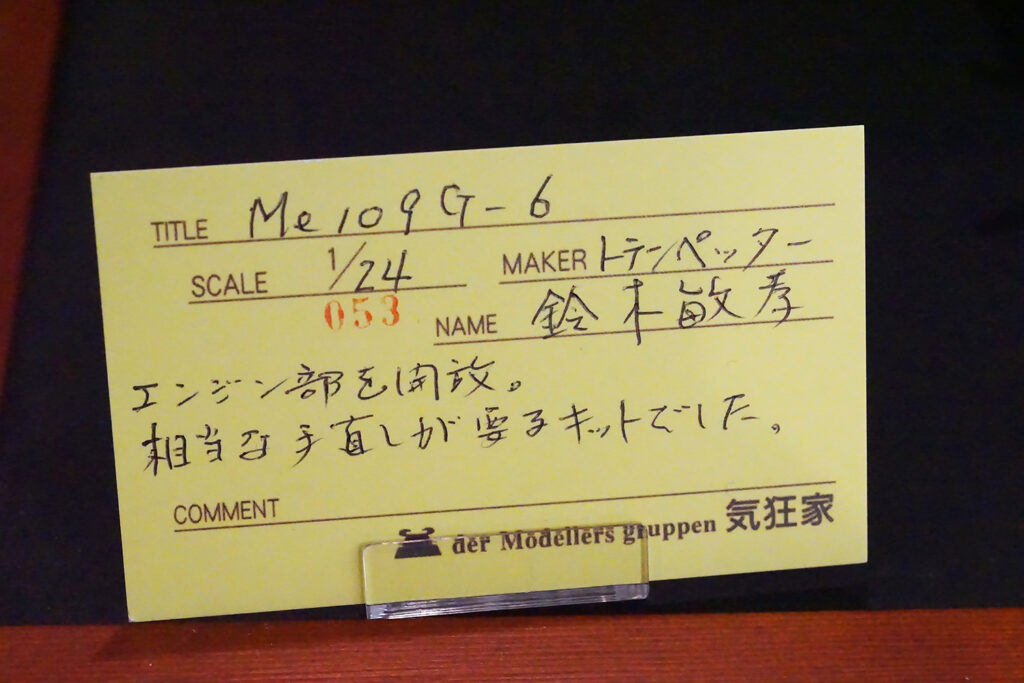 TITLE Me109G-6
SCALE 1/24 MAKER トラペッター
053
NAME 鈴木敏孝
エンジン部を開放。
相当な手直しが要るキットでした。
COMMENT
der Modellers gruppen 気狂家